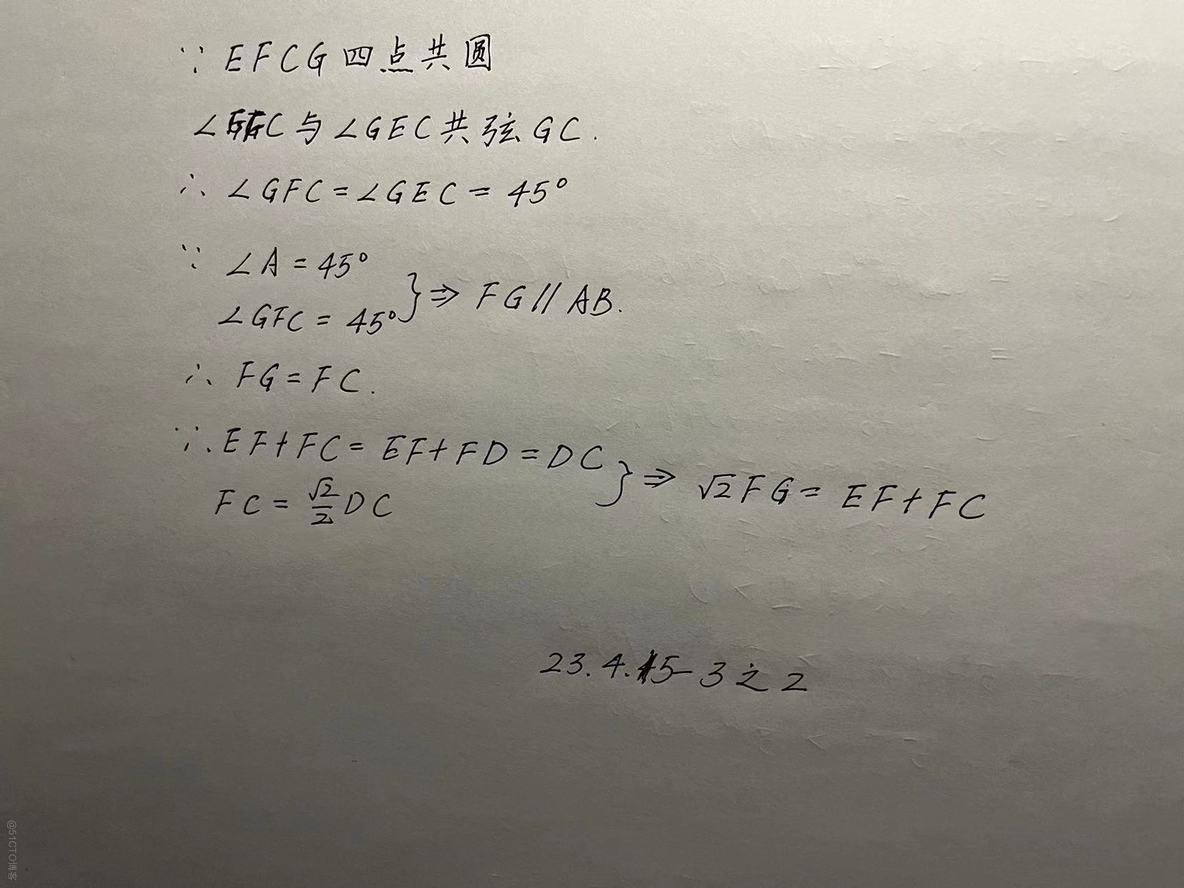 ∵ EFCG 四点共圆
∠GFC与∠GEC共弦GC.
∴ ∠GFC=∠GEC=45°
∵ ∠A=45°
∠GFC=45° } ⇒ FG∥AB.
∴ FG=FC.
∵. EF+FC=EF+FD=DC
FC=√2/2 DC } ⇒ √2FG=EF+FC
23.4.15-3之2
@51CTO博客